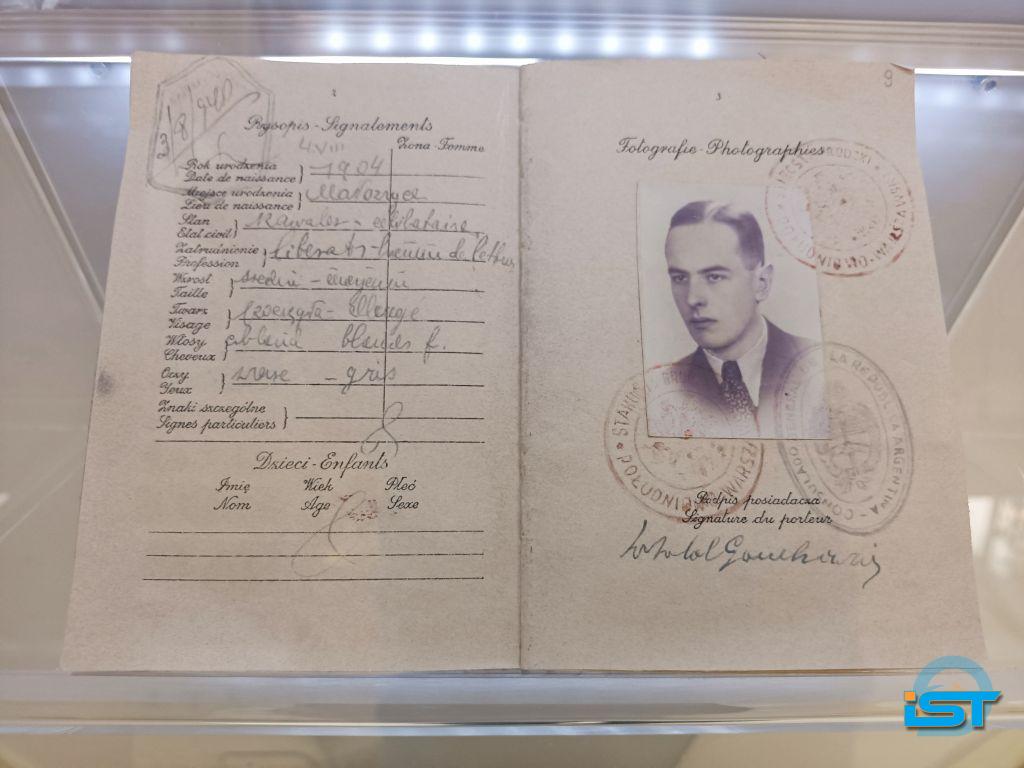 2
Rysopis - Signalements
4.VIII
Żona - Femme
Rok urodzenia
Date de naissance } 1904
Miejsce urodzenia
Lieu de naissance } Małoszyce
Stan
Etat civil } Kawaler - célibataire
Zatrudnienie
Profession } Literat - homme de lettres
Wzrost
Taille } średni - moyenne
Twarz
Visage } allongé
Włosy
Cheveux } blond blonds f.
Oczy
Yeux } szare - gris
Znaki szczególne
Signes particuliers }
Dzieci - Enfants
Imię Wiek Płeć
Nom Age Sexe
9
3
Fotografie - Photographies
LA REPUBLICA ARGENTINA - CONSULADO
Podpis posiadacza
Signature du porteur
Witold Gombrowicz
iST